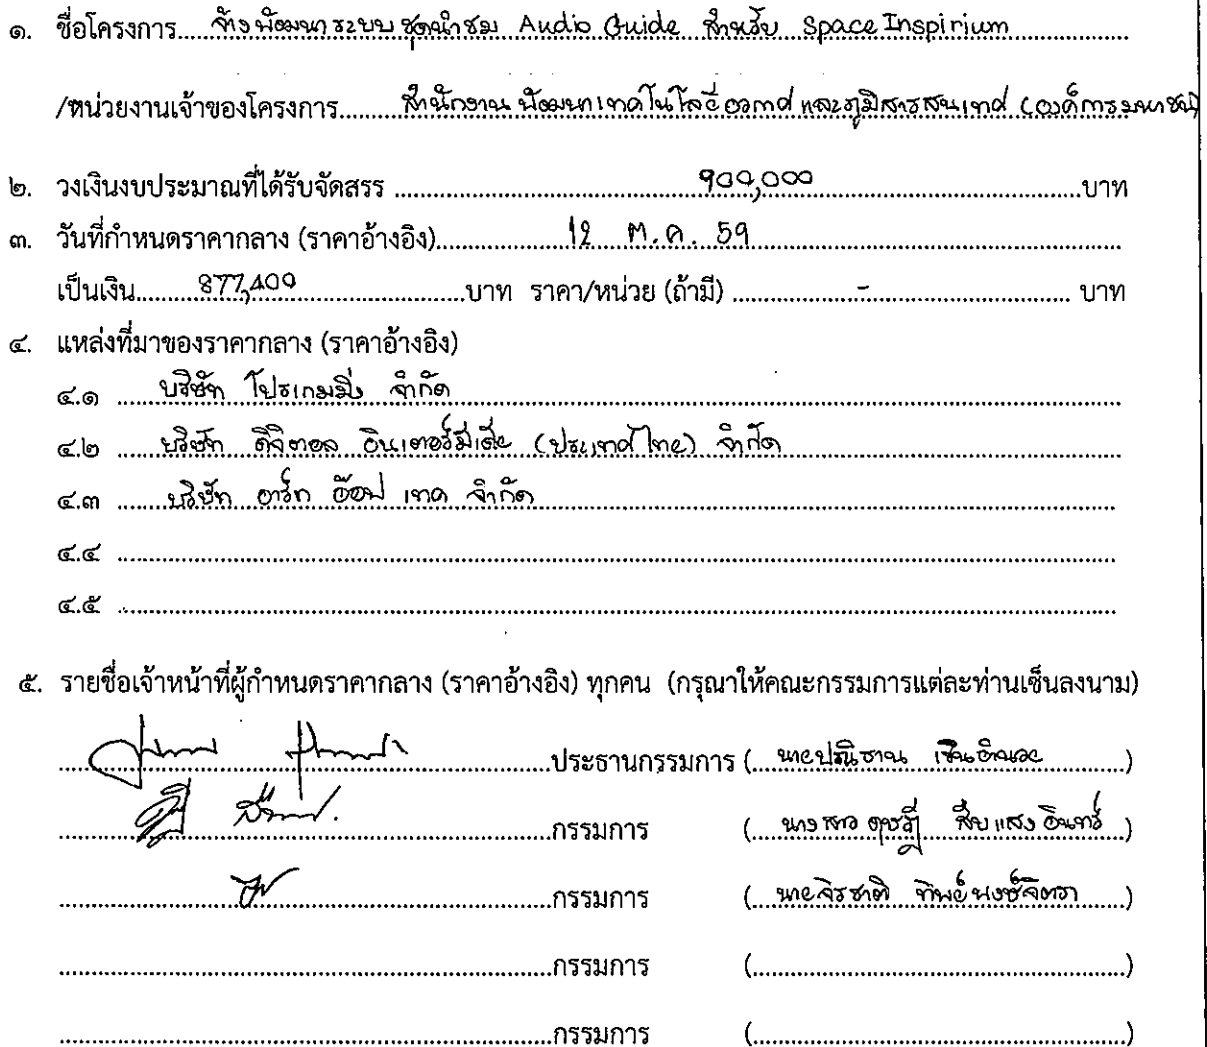 ๑. ชื่อโครงการ....จ้างพัฒนาระบบชุดนำชม Audio Guide สำหรับ Space Inspirium....
/หน่วยงานเจ้าของโครงการ....สำนักงานพัฒนาเทคโนโลยีอวกาศและภูมิสารสนเทศ (องค์การมหาชน)
๒. วงเงินงบประมาณที่ได้รับจัดสรร ....900,000....บาท
๓. วันที่กำหนดราคากลาง (ราคาอ้างอิง)....12 ต.ค. 59....
เป็นเงิน....877,400....บาท ราคา/หน่วย (ถ้ามี) ....-.... บาท
๔. แหล่งที่มาของราคากลาง (ราคาอ้างอิง)
๔.๑ ....บริษัท โปรเกมมิ่ง จำกัด....
๔.๒ ....บริษัท ดิจิตอล อินเตอร์มีเดีย (ประเทศไทย) จำกัด....
๔.๓ ....บริษัท อาร์ท อ๊อฟ เทค จำกัด....
๔.๔ ....
๔.๕ ....
๕. รายชื่อเจ้าหน้าที่ผู้กำหนดราคากลาง (ราคาอ้างอิง) ทุกคน (กรุณาให้คณะกรรมการแต่ละท่านเซ็นลงนาม)
....ประธานกรรมการ (....นายปรณิธาน....)
....กรรมการ (....นางสาวดุษฎี สืบแสงอินทร์....)
....กรรมการ (....นายจิรชาติ ทิพย์พงษ์จิตรา....)
....กรรมการ (....)
....กรรมการ (....)